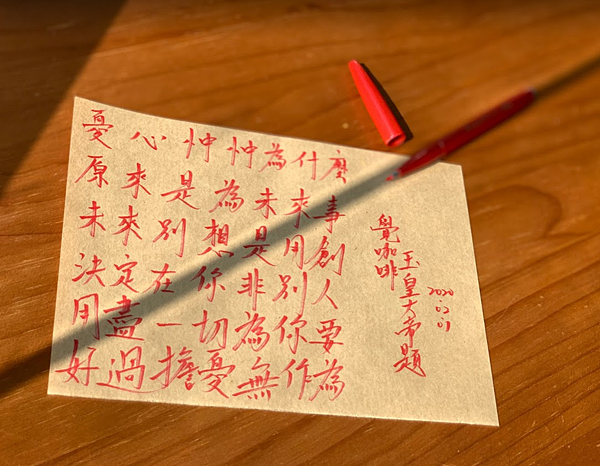 憂心忡忡為什麼
原來是為未來事
未來別想是用創
決定在你非別人
用盡一切為你要
好過擔憂無作為
覺咖啡
玉皇大帝題
2020